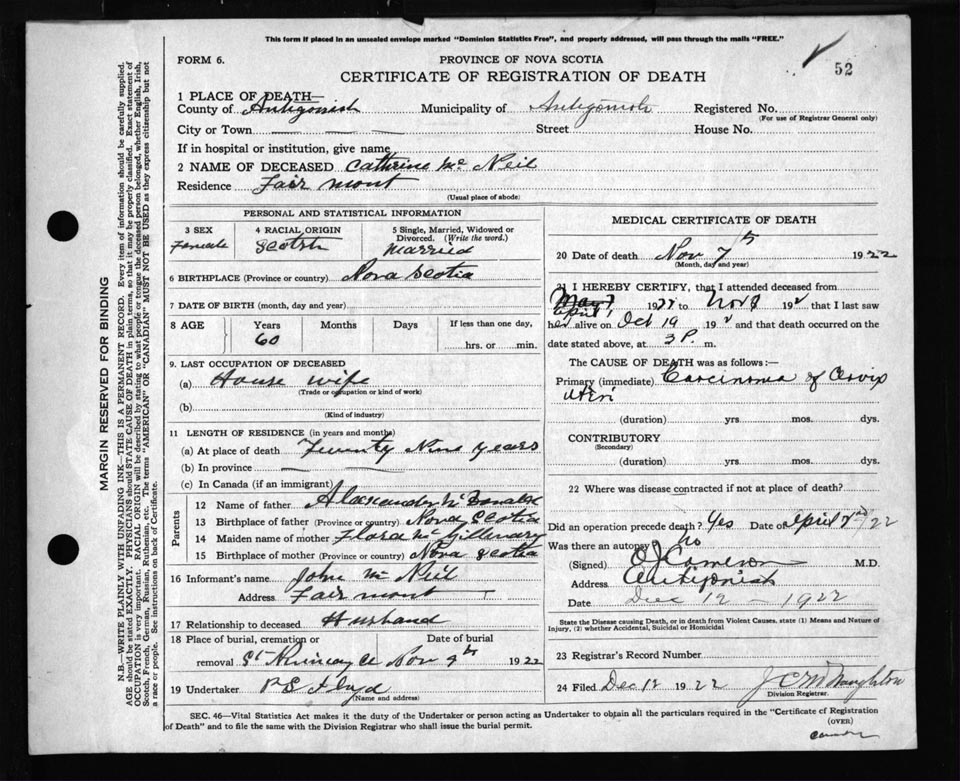 This form if placed in an unsealed envelope marked "Dominion Statistics Free", and properly addressed, will pass through the mails "FREE."
52
FORM 6.
PROVINCE OF NOVA SCOTIA
CERTIFICATE OF REGISTRATION OF DEATH
1 PLACE OF DEATH—
County of Antigonish Municipality of Antigonish Registered No.
(For use of Registrar General only)
City or Town — — — Street House No.
If in hospital or institution, give name
2 NAME OF DECEASED Cathrine Mc Neil
Residence Fair mont
(Usual place of abode)
PERSONAL AND STATISTICAL INFORMATION
3 SEX 4 RACIAL ORIGIN 5 Single, Married, Widowed or Divorced. (Write the word.)
Female Scotch Married
6 BIRTHPLACE (Province or country) Nova Scotia
7 DATE OF BIRTH (month, day and year)
8 AGE Years Months Days If less than one day,
60 hrs. or min.
9. LAST OCCUPATION OF DECEASED
(a) House wife
(Trade or occupation or kind of work)
(b)
(Kind of industry)
11 LENGTH OF RESIDENCE (in years and months)
(a) At place of death Twenty Nine years
(b) In province — —
(c) In Canada (if an immigrant)
Parents
12 Name of father Alaxander Mc Donald
13 Birthplace of father (Province or country) Nova Scotia
14 Maiden name of mother Flora Mc Gillivary
15 Birthplace of mother (Province or country) Nova Scotia
16 Informant's name John Mc Neil
Address Fair mont
17 Relationship to deceased Husband
18 Place of burial, cremation or Date of burial
removal St Nov 9th 1922
19 Undertaker P S Floyd
(Name and address)
MEDICAL CERTIFICATE OF DEATH
20 Date of death Nov 7th 1922
(Month, day and year)
21 I HEREBY CERTIFY, that I attended deceased from
April 1922 to Nov 192 that I last saw
her alive on Oct 19 192 and that death occurred on the
date stated above, at 3 P. m.
The CAUSE OF DEATH was as follows:—
Primary (immediate) Carcinoma of Cervix
Uteri
(duration) yrs. mos. dys.
CONTRIBUTORY
(Secondary)
(duration) yrs. mos. dys.
22 Where was disease contracted if not at place of death?
Did an operation precede death? Yes Date of April 2nd/22
Was there an autopsy? No
(Signed) O J Cameron M.D.
Address Antigonish
Date Dec 12 — 1922
State the Disease causing Death, or in death from Violent Causes, state (1) Means and Nature of
Injury, (2) whether Accidental, Suicidal or Homicidal
23 Registrar's Record Number
24 Filed Dec 12 1922 J C McNaughton
Division Registrar.
SEC. 46—Vital Statistics Act makes it the duty of the Undertaker or person acting as Undertaker to obtain all the particulars required in the "Certificate of Registration
of Death" and to file the same with the Division Registrar who shall issue the burial permit.
(OVER)
MARGIN RESERVED FOR BINDING
N.B.—WRITE PLAINLY WITH UNFADING INK—THIS IS A PERMANENT RECORD. Every item of information should be carefully supplied.
AGE should be stated EXACTLY. PHYSICIANS should STATE CAUSE OF DEATH in plain terms, so that it may be properly classified. Exact statement of
OCCUPATION is very important. RACIAL ORIGIN will be described by stating to what people or tongue the deceased person belonged, whether English, Irish,
Scotch, French, German, Russian, Ruthenian, etc. The terms "AMERICAN" or "CANADIAN" MUST NOT BE USED as they express citizenship but not
a race or people. See instructions on back of Certificate.